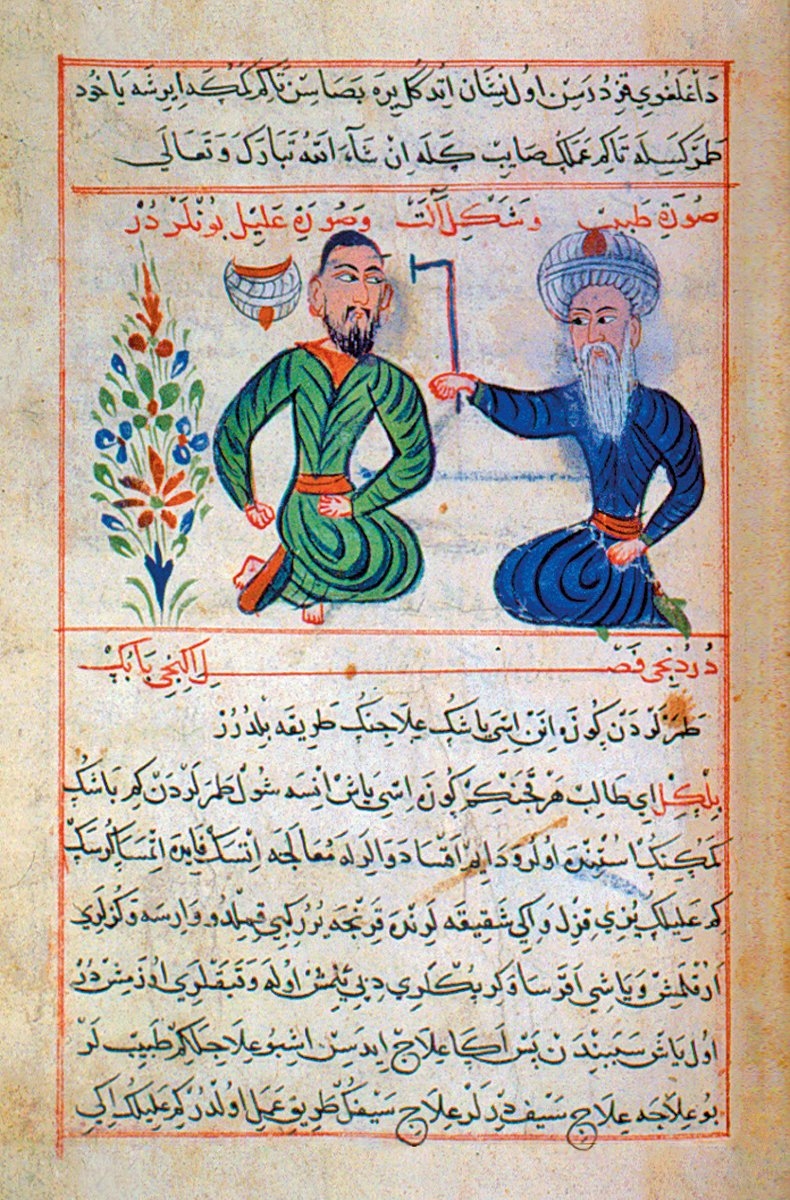 داغلغوي قزدرسن اول نشان اتدگل يره بصاسن تاكم كمكه ايرشه ياخود
طمر كسله تاكم عملك صايب گله ان شاء الله تبارك وتعالى
صورة طبيب وشكل آلت وصورة عليل بونلردر
دردنجي فصل ايكنجي بابك
طمرلردن گوزه انن اسي ياشك علاجنك طريقه بلدرر
بلگل اي طالب هر قچنكم گوزه اسي ياش انسه شول طمرلردن كم باشك
كمكنك استنده اولر ودايم اقسا دوالرله معالجه اتسك فايده اتمسا گورسك
كم عليلك يزي قزل واكي شقيقه لرنده قرنجه يرر كبي وارسه وگزلري
ويااشي اقرسا وكربكلري ديبي اوله وقبقلري اوزمش در
اول ياش سببندن پس اكا علاج ايدسن اشبو علاجله كم طبيب لر
بو علاجه علاج سيف ديرلر علاج سيفك طريق عمل اولدر كم عليلك اكي